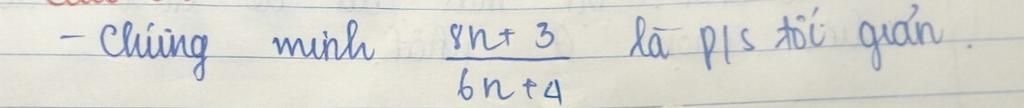 - Chứng minh 8n+3 / 6n+4 là p/s tối giản.